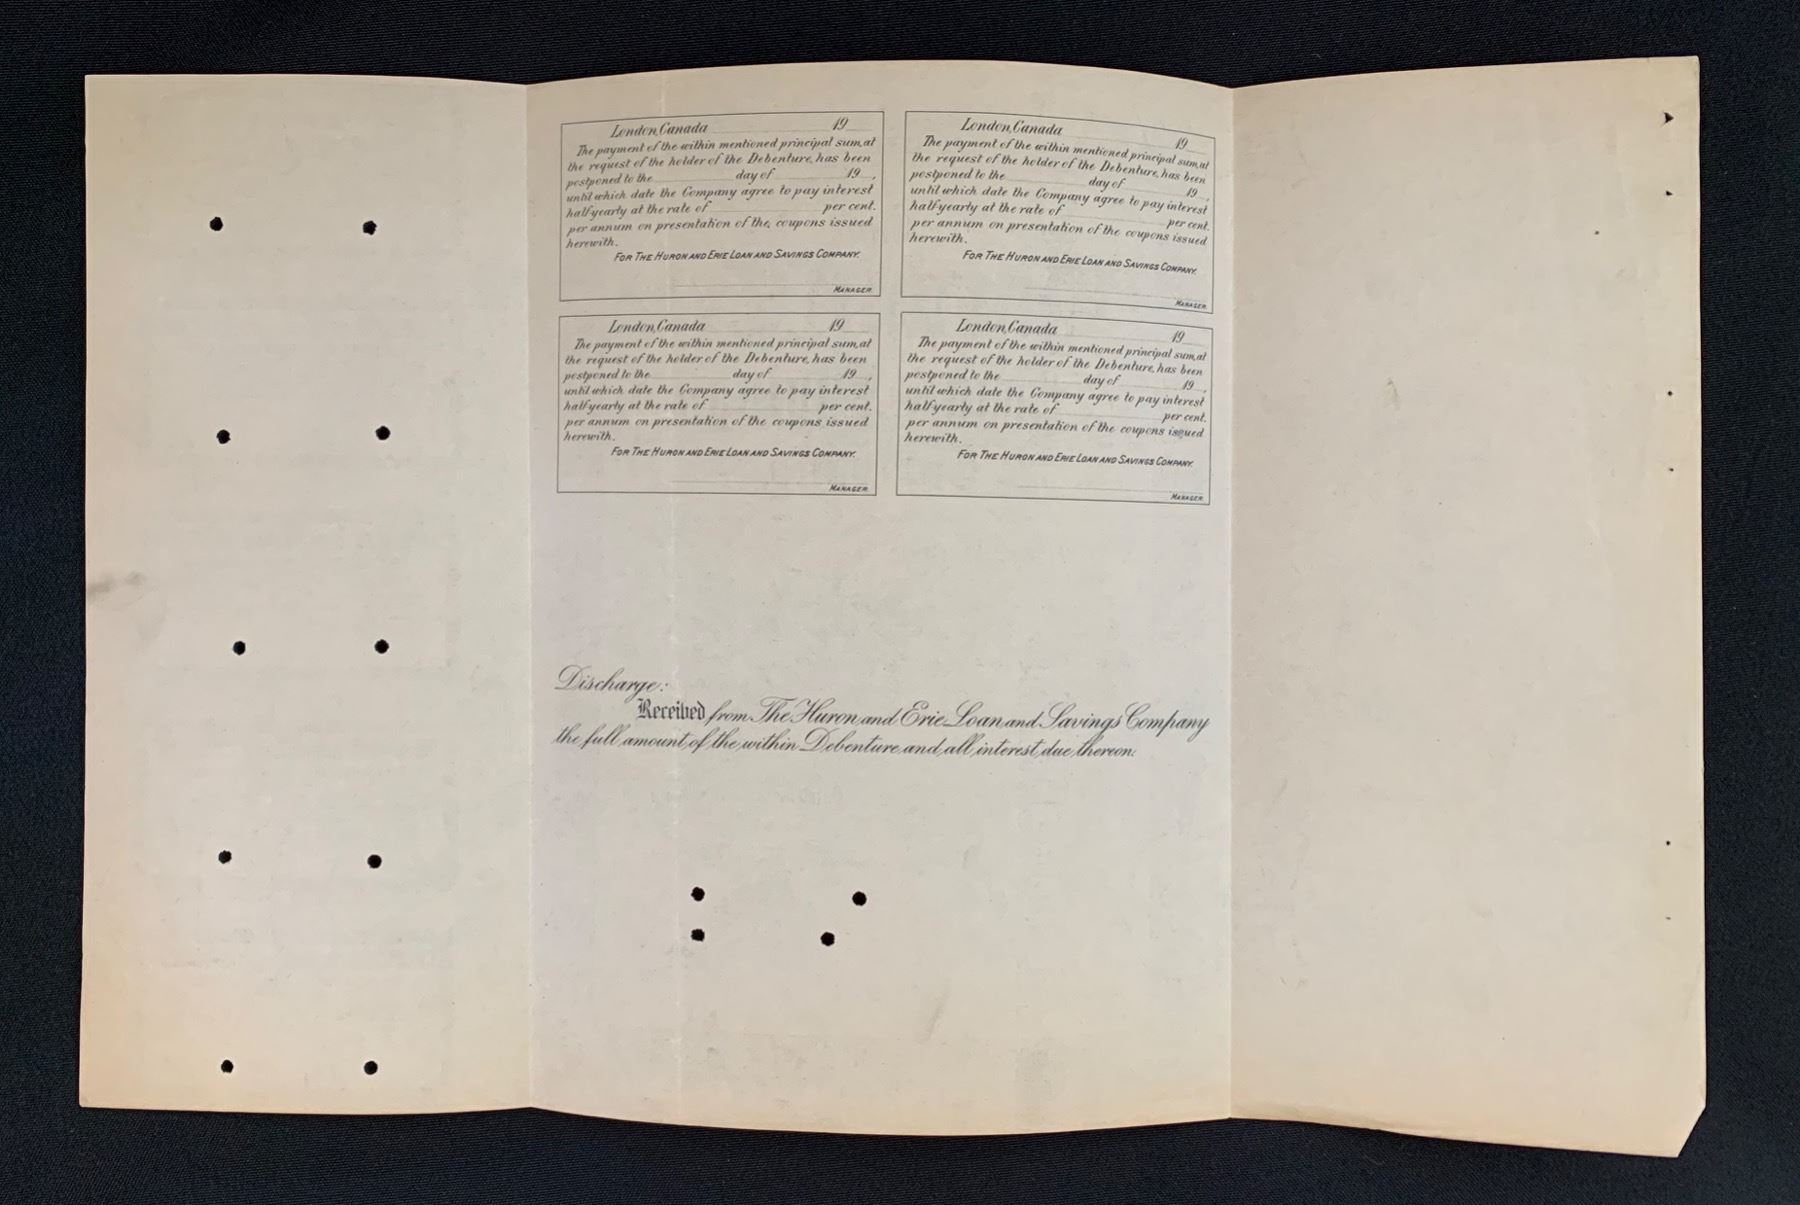 London, Canada 19
The payment of the within mentioned principal sum, at
the request of the holder of the Debenture, has been
postponed to the day of 19 ,
until which date the Company agree to pay interest
half yearly at the rate of per cent.
per annum on presentation of the coupons issued
herewith.
FOR THE HURON AND ERIE LOAN AND SAVINGS COMPANY.
MANAGER.
London, Canada 19
The payment of the within mentioned principal sum, at
the request of the holder of the Debenture, has been
postponed to the day of 19 ,
until which date the Company agree to pay interest
half yearly at the rate of per cent.
per annum on presentation of the coupons issued
herewith.
FOR THE HURON AND ERIE LOAN AND SAVINGS COMPANY.
MANAGER.
London, Canada 19
The payment of the within mentioned principal sum, at
the request of the holder of the Debenture, has been
postponed to the day of 19 ,
until which date the Company agree to pay interest
half yearly at the rate of per cent.
per annum on presentation of the coupons issued
herewith.
FOR THE HURON AND ERIE LOAN AND SAVINGS COMPANY.
MANAGER.
London, Canada 19
The payment of the within mentioned principal sum, at
the request of the holder of the Debenture, has been
postponed to the day of 19 ,
until which date the Company agree to pay interest
half yearly at the rate of per cent.
per annum on presentation of the coupons issued
herewith.
FOR THE HURON AND ERIE LOAN AND SAVINGS COMPANY.
MANAGER.
Discharge:
Received from The Huron and Erie Loan and Savings Company
the full amount of the within Debenture and all interest due thereon.